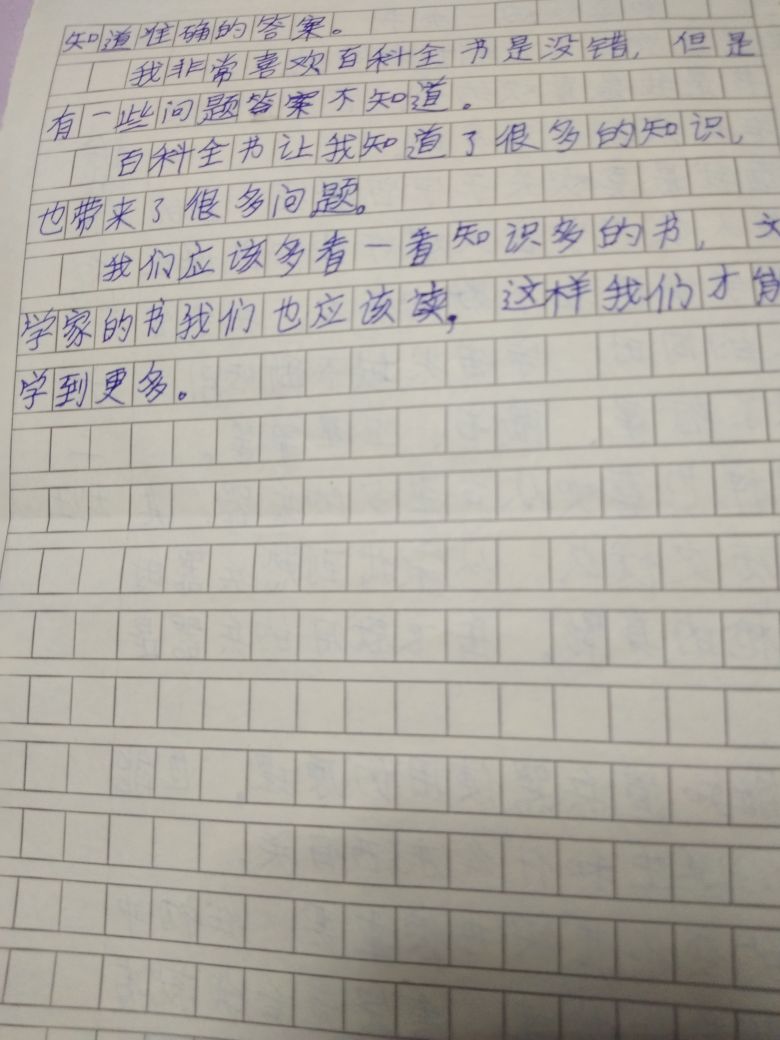 知道准确的答案。
我非常喜欢百科全书是没错，但是
有一些问题答案不知道。
百科全书让我知道了很多的知识，
也带来了很多问题。
我们应该多看一看知识多的书，文
学家的书我们也应该读，这样我们才能
学到更多。